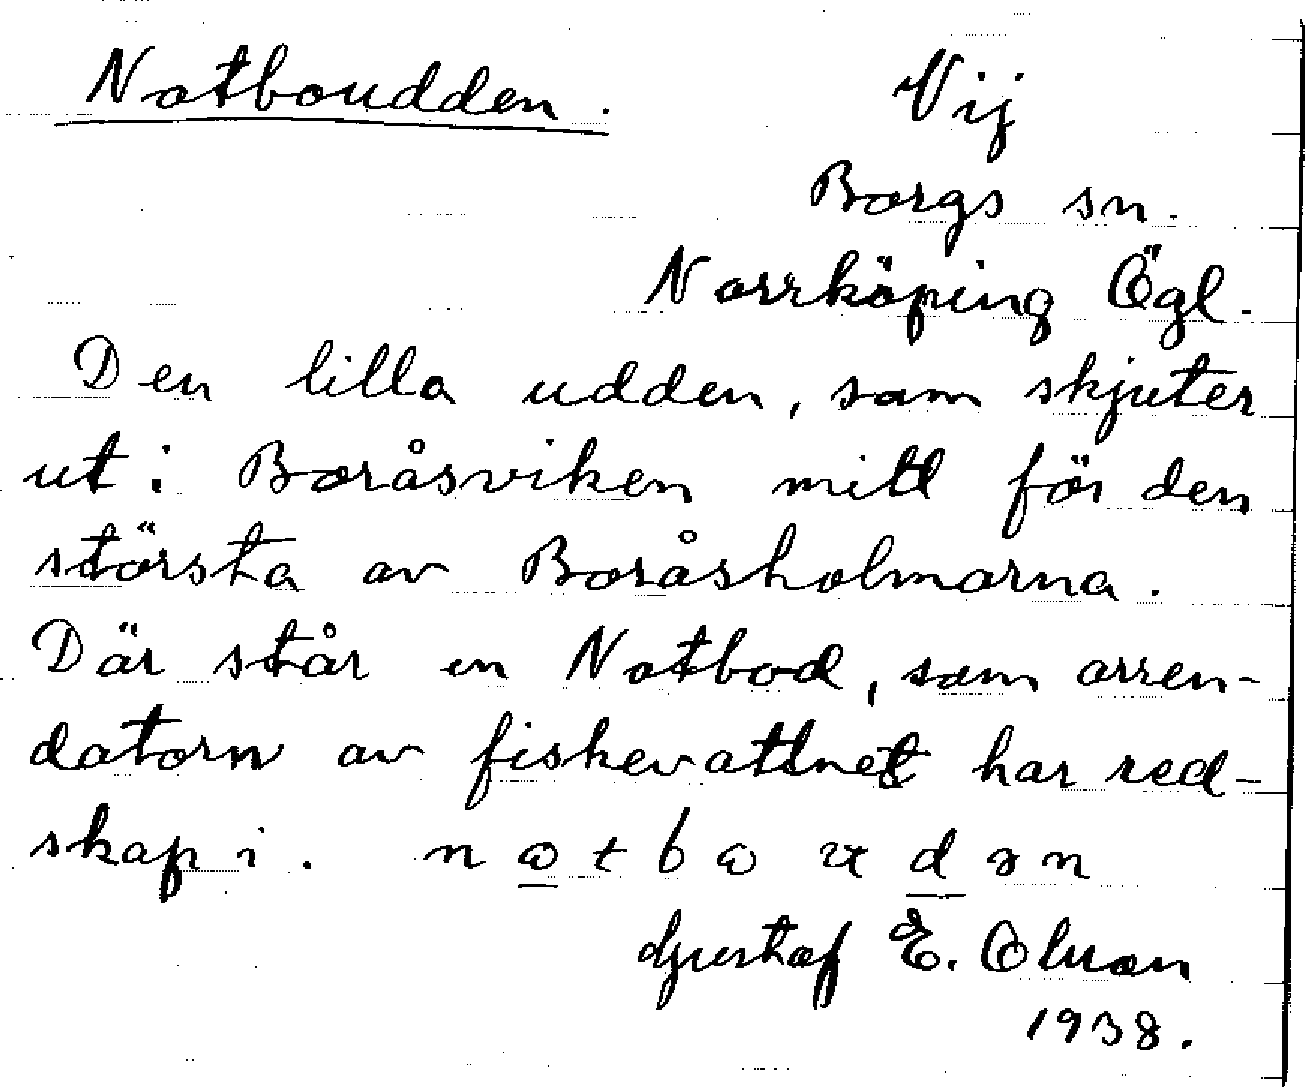 Notboudden. Vij
Borgs sn.
Norrköping Ögl.
Den lilla udden, som skjuter
ut i Boråsviken mitt för den
största av Boråsholmarna.
Där står en Notbod, som arren-
datorn av fiskevattnet har red-
skap i.
Gustaf E. Olson
1938.